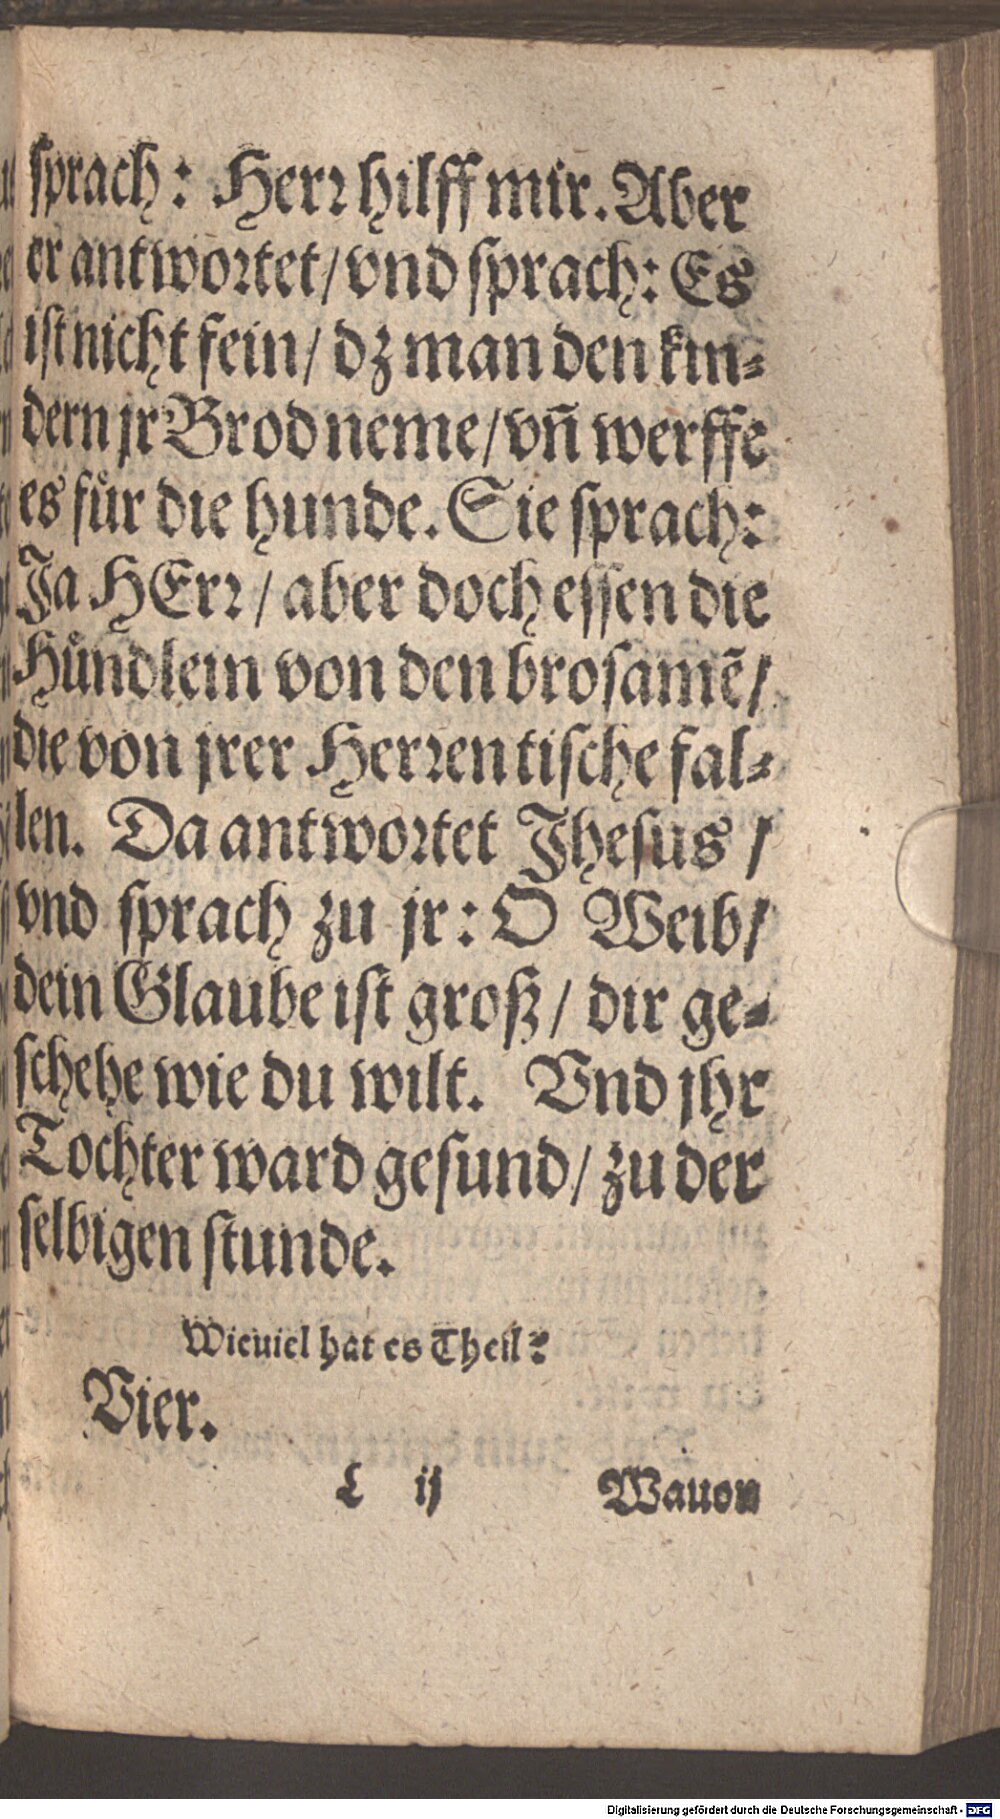 sprach: Herr hilff mir. Aber
er antwortet/ vnd sprach: Es
ist nicht fein/ dz man den kin⸗
dern jr Brod neme/ vn̄ werffe
es fuͤr die hunde. Sie sprach:
Ja HErr/ aber doch essen die
Huͤndlein von den brosamē/
die von jrer Herren tische fal⸗
len. Da antwortet Jhesus/
vnd sprach zu jr: O Weib/
dein Glaube ist groß/ dir ge⸗
schehe wie du wilt. Vnd jhr
Tochter ward gesund/ zu der
selbigen stunde.
Wieuiel hat es Theil?
Vier.
L ij Wauon
Digitalisierung gefördert durch die Deutsche Forschungsgemeinschaft - DFG